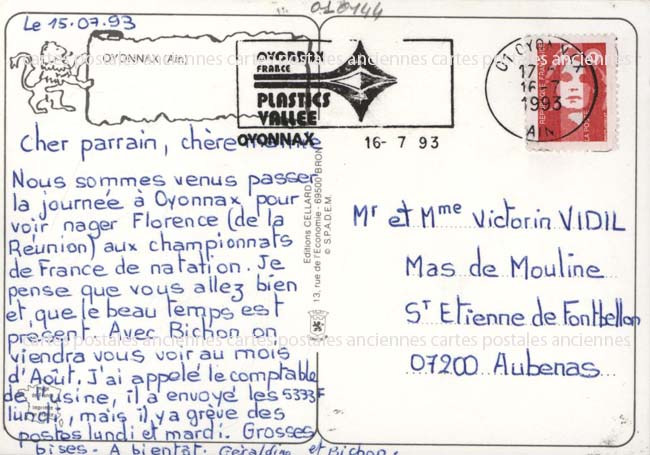 018144
Le 15.07.93
OYONNAX (Ain)
OYONNAX
FRANCE
PLASTICS
VALLEE
OYONNAX
16- 7 93
01 OYONNAX
17
16-7
1993
AIN
cartes postales anciennes cartes postales anciennes cartes postales anciennes
Cher parrain, chère
Nous sommes venus passer
la journée à Oyonnax pour
voir nager Florence (de la
Réunion) aux championnats
de France de natation. Je
pense que vous allez bien
et que le beau temps est
présent. Avec Bichon on
viendra vous voir au mois
d'Août. J'ai appelé le comptable
de l'usine, il a envoyé les 5333F
lundi, mais il y a grève des
postes lundi et mardi. Grosses
bises. A bientôt. Géraldine et Bichon.
Editions CELLARD
13, rue de l'Economie - 69500 BRON
© S.P.A.D.E.M.
Mr et Mme Victorin VIDIL
Mas de Mouline
St Etienne de Fontbellon
cartes postales anciennes cartes postales anciennes cartes postales anciennes
07200 Aubenas